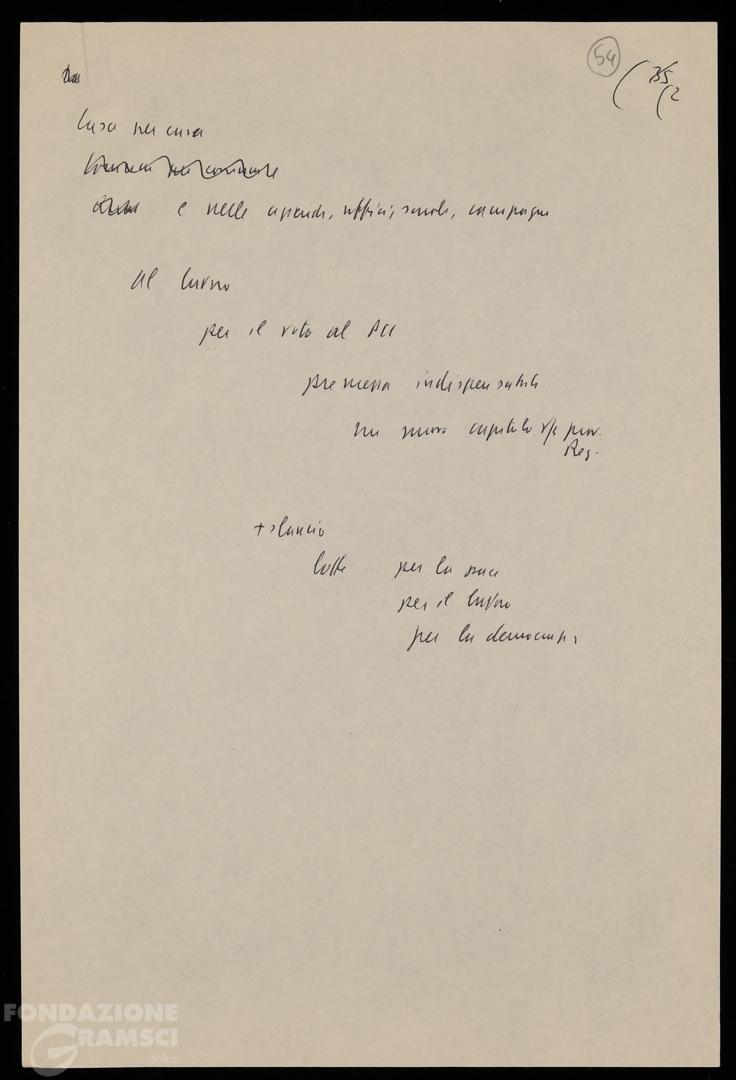 54
35
(2
Casa per casa
e nelle aziende, uffici, scuole, campagne
al lavoro
per il voto al PCI
premessa indispensabile
un nuovo capitolo prov.
Reg.
+ slancio
lotte per la pace
per il lavoro
per la democrazia
FONDAZIONE
GRAMSCI
onlus